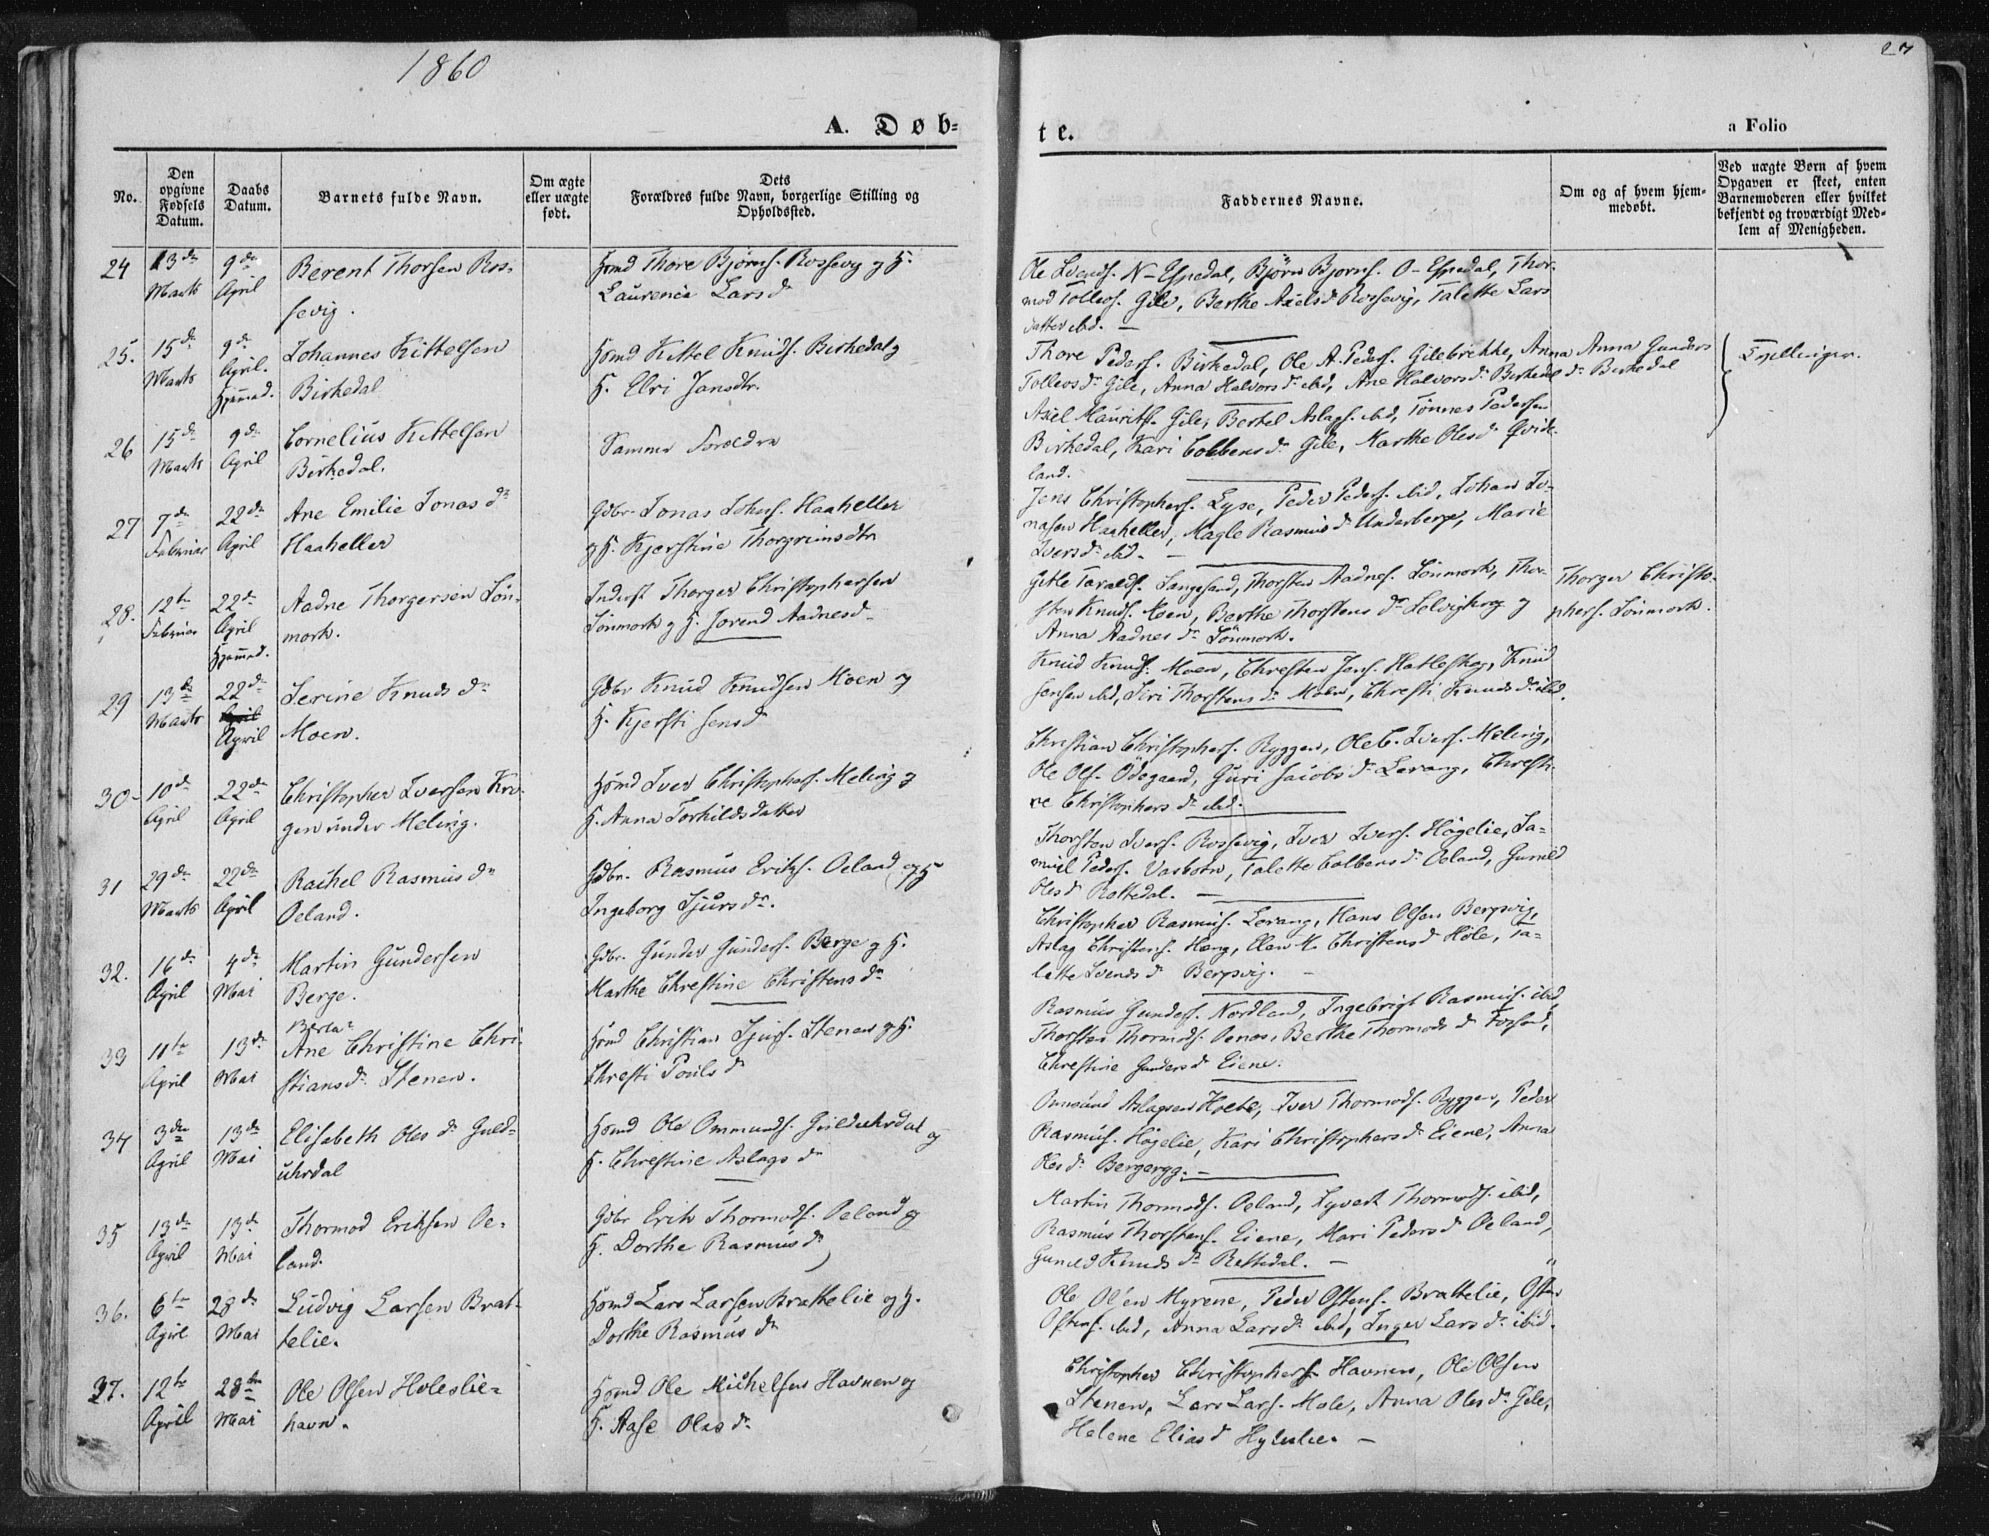 1860
27
A. Døb=
te.
a Folio
No.
Den
opgivne
Fødsels
Datum.
Daabs
Datum.
Barnets fulde Navn.
Om ægte
eller uægte
født.
Dets
Forældres fulde Navn, borgerlige Stilling og
Opholdssted.
Faddernes Navne.
Om og af hvem hjem-
medøbt.
Ved uægte Børn af hvem
Opgaven er skeet, enten
Barnemoderen eller hvilket
bekjendt og troværdigt Med-
lem af Menigheden.
24
13de
Marts
9de
April
Berent Thorsen Ros-
sevig.
Hsmd Thore Bjørns. Rossevig og H.
Laurencia Larsdr
Ole Svends. N-Espedal, Bjørn Bjørns. O-Espedal, Thor-
mod Tollevs. Gile, Berthe Axelsdr Rossevig, Talette Lars
datter ibid. —
25.
15de
Marts
9de
April.
Hjemmed.
Johannes Kittelsen
Birkedal
Hsmd Kittel Knuds. Birkedal og
H. Elri Jansdtr.
Thore Peders. Birkedal, Ole A. Peders. Gilebrekke, Anna
Tollevsdr Gile, Anna Halvorsdr ibid, Ane Halvorsdr Birkedal
Anna Gunders
dr Birkedal
Tvillinger.
26
15de
Marts
9de
April
Cornelius Kittelsen
Birkedal.
Samme Forældre
Axel Maurits. Gile, Bertel Aslags. ibid, Tønnes Pedersen
Birkedal, Kari Colbensdr Gile, Marthe Olesdr Qvide-
land.
27
7de
Februar
22de
April
Ane Emilie Jonasdr
Haaheller
Gdbr. Jonas Johns. Haaheller
og H. Kjerstine Thorgrimsdtr
Jens Christophers. Lyse, Peder Peders. ibid, Johan Jo-
nasen Haaheller, Magle Rasmusdr Underberge, Marie
Iversdr ibid. —
28.
12te
Februar
22de
April
Hjemmed.
Aadne Thorgersen Løn-
mork.
Inderst Thorger Christophersen
Lønmork og H. Jorend Aadnesdr
Gitle Taralds. Langesand, Thorsten Aadnes. Lønmork, Thor-
sten Knuds. Moen, Berthe Thorstensdr Selvigberg og
Anna Aadnesdr Lønmork.
Thorger Christo-
phers. Lønmork.
29
13de
Marts
22de
April
April
Serine Knudsdr
Moen.
Gdbr Knud Knudsen Moen og
H. Kjersti Jensdr
Knud Knuds. Moen, Christen Jens. Hatleskog, Knud
Jensen ibid, Siri Thorstensdr Moen, Christi Knudsdr ibid.
30-
10de
April
22de
April
Christopher Iversen Kro-
gen under Meling.
Hsmd Iver Christophers. Meling og
H. Anna Torkildsdatter
Christian Christophers. Ryggen, Ole C. Ivers. Meling,
Ole Ols. Ødegaard, Guri Jacobsdr Levang, Christi-
ne Christophersdr ibid.
31
29de
Marts
22de
April
Rachel Rasmusdr
Oeland.
Gdbr. Rasmus Eriks. Oeland og H
Ingeborg Sjursdr.
Thorsten Ivers. Rossevig, Iver Ivers. Høgelie, Sa-
muel Peders. Vasbotn, Talette Colbensdr Oeland, Gunild
Olesdr Rettedal. —
32.
16de
April
4de
Mai
Martin Gundersen
Berge.
Gdbr. Gunder Gunders. Berge og H.
Marthe Christine Christensdr
Christopher Rasmus. Levang, Hans Olsen Bergsvig,
Aslag Christens. Hang, Elen M. Christensdr Hole, Ta-
lette Svendsdr Bergsvig. —
33
11te
April
13de
Mai
Berta
Ane Christine Chri-
stiansdr Stenen.
Hsmd Christian Sjurs. Stenen og H.
Christi Poulsdr
Rasmus Gunders. Nordland, Ingebrigt Rasmus. ibid,
Thorsten Thormods. Oenes, Berthe Thormodsdr Forsand,
Christine Gundersdr Eiene.
34
3die
April
13de
Mai
Elisabeth Olesdr Guld-
uhrdal
Hsmd Ole Ommunds. Gulduhrdal og
H. Christine Aslagsdr
Ommund Aslagsen Holte, Iver Thormods. Ryggen, Peder
Rasmus. Høgelie, Kari Christophersdr Eiene, Anna
Olesdr Bergerygg. —
35
13de
April
13de
Mai
Thormod Eriksen Oe-
land.
Gdbr Erik Thormods. Oeland og
H. Dorthe Rasmusdr
Martin Thormods. Oeland, Syvert Thormods. ibid,
Rasmus Thorstens. Eiene, Mari Pedersdr Oeland,
Gunild Knudsdr Rettedal. —
36.
6te
April
28de
Mai
Ludvig Larsen Brat-
telie.
Hsmd Lars Larsen Brattelie og H.
Dorthe Rasmusdr
Ole Olsen Myrene, Peder Ostens. Brattelie, Osten
Ostens. ibid, Anna Larsdr ibid, Inger Larsdr ibid.
37.
12te
April
28de
Mai
Ole Olsen Holeslie-
havn.
Hsmd Ole Michelsen Havnen og
H. Aase Olesdr
Christopher Christophers. Havnen, Ole Olsen
Stenen, Lars Lars. Mole, Anna Olesdr Gile,
Helene Eliasdr Hylelie. —